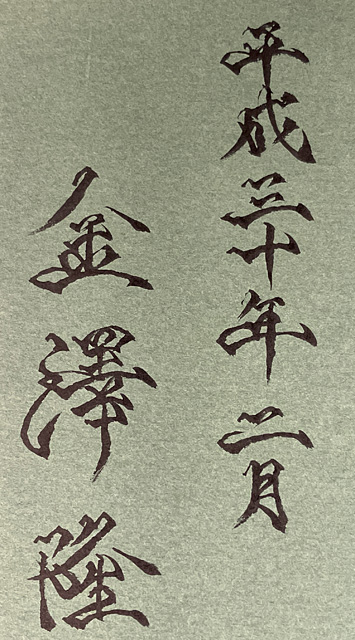 平成三十年二月
金澤隆